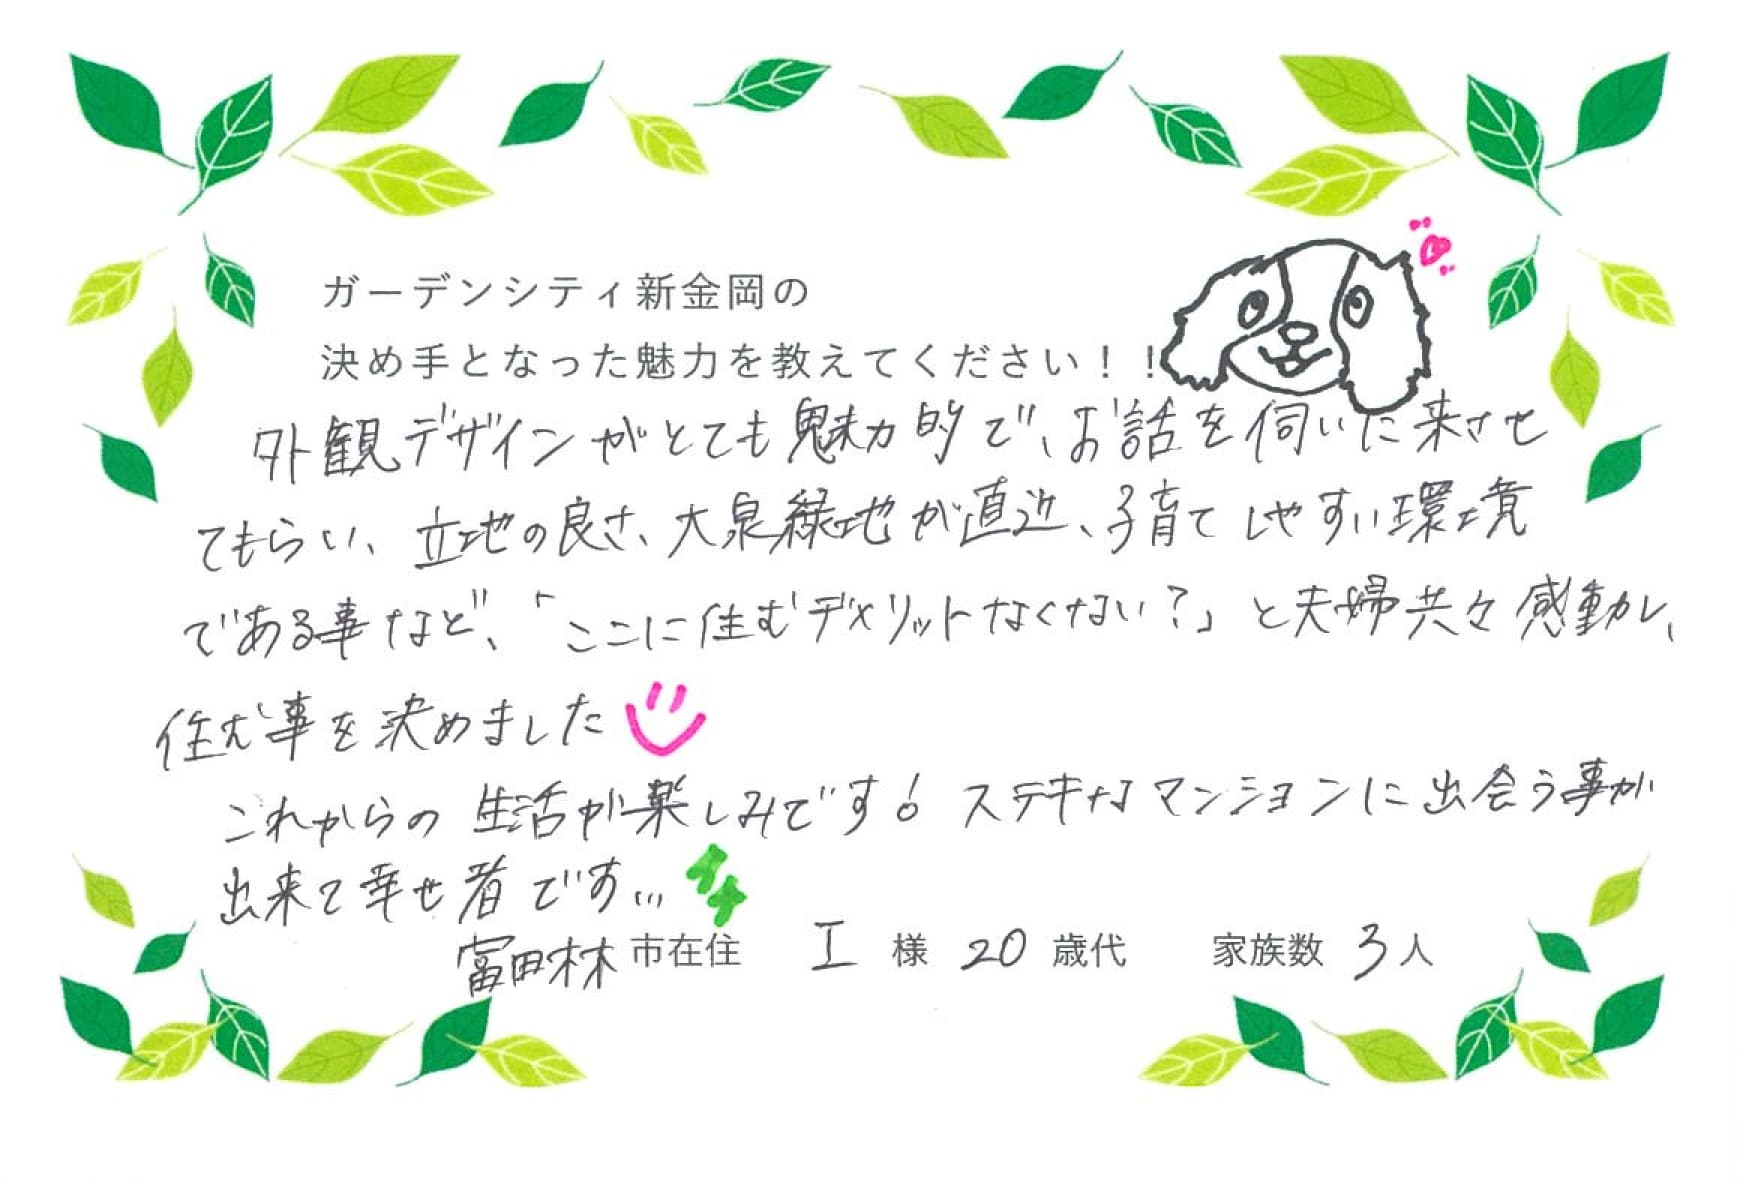 ガーデンシティ新金岡の
決め手となった魅力を教えてください！！
外観デザインがとても魅力的で、お話を伺いに来させ
てもらい、立地の良さ、大泉緑地が直近、子育てしやすい環境
である事など、「ここに住むデメリットなくない？」と夫婦共々感動し、
住む事を決めました
これからの生活が楽しみです！ステキなマンションに出会う事が
出来て幸せ者です...
富田林市在住 I 様 20 歳代 家族数 3人